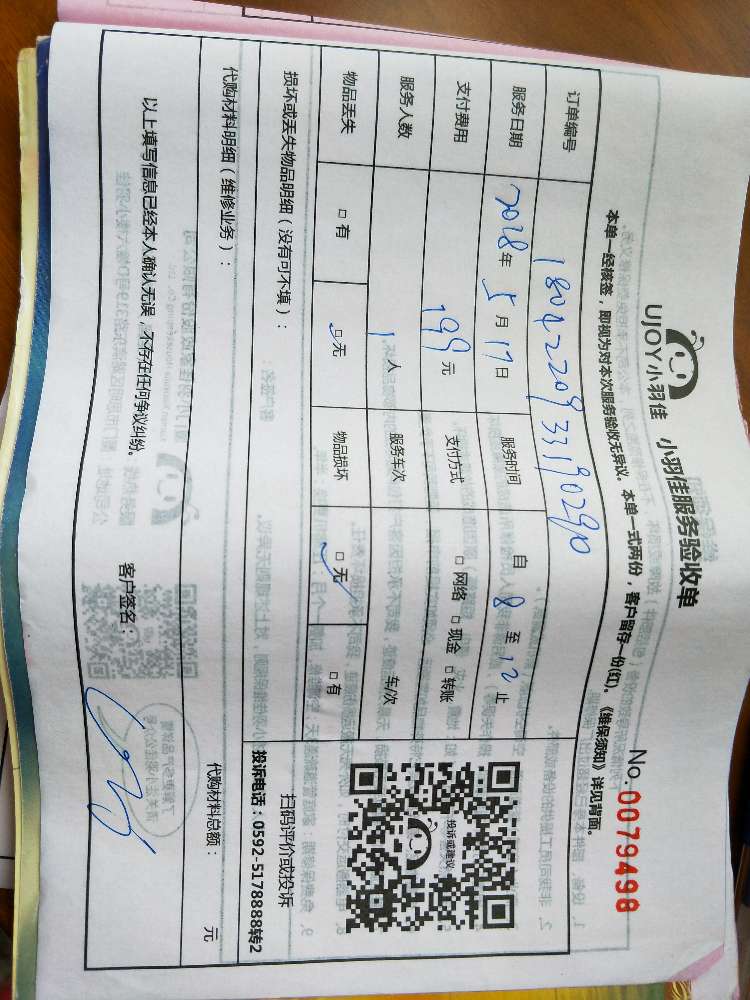 UJOY小羽佳 小羽佳服务验收单
No. 0079498
本单一经核签，即视为对本次服务验收无异议。本单一式两份，客户留存一份(红)。《维保须知》详见背面。
订单编号 1804220933190290
服务日期 2018年5月17日 服务时间 自 8 至 12 止
支付费用 199元 支付方式 □ 网络 □ 现金 □ 转账
服务人数 1人 服务车次 车/次
物品丢失 □ 有 □ 无 物品损坏 □ 无 □ 有
投诉或建议
损坏或丢失物品明细（没有可不填）：
扫码评价或投诉
投诉电话：0592-5178888转2
代购材料明细（维修业务）：
代购材料总额： 元
以上填写信息已经本人确认无误，不存在任何争议纠纷。
客户签名：